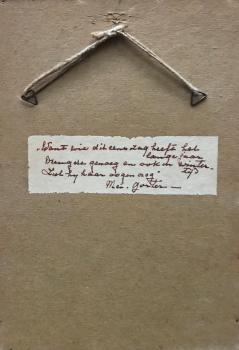 "Want wie dit eens zag heeft het
lange jaar
Vreugde genoeg en ook in winter-
tijd
Ziet hij haar oogen nog"
Gorter —